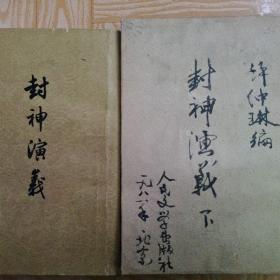 封神演義
許仲琳編
封神演義下
人民文学出版社
一九八八年 北京